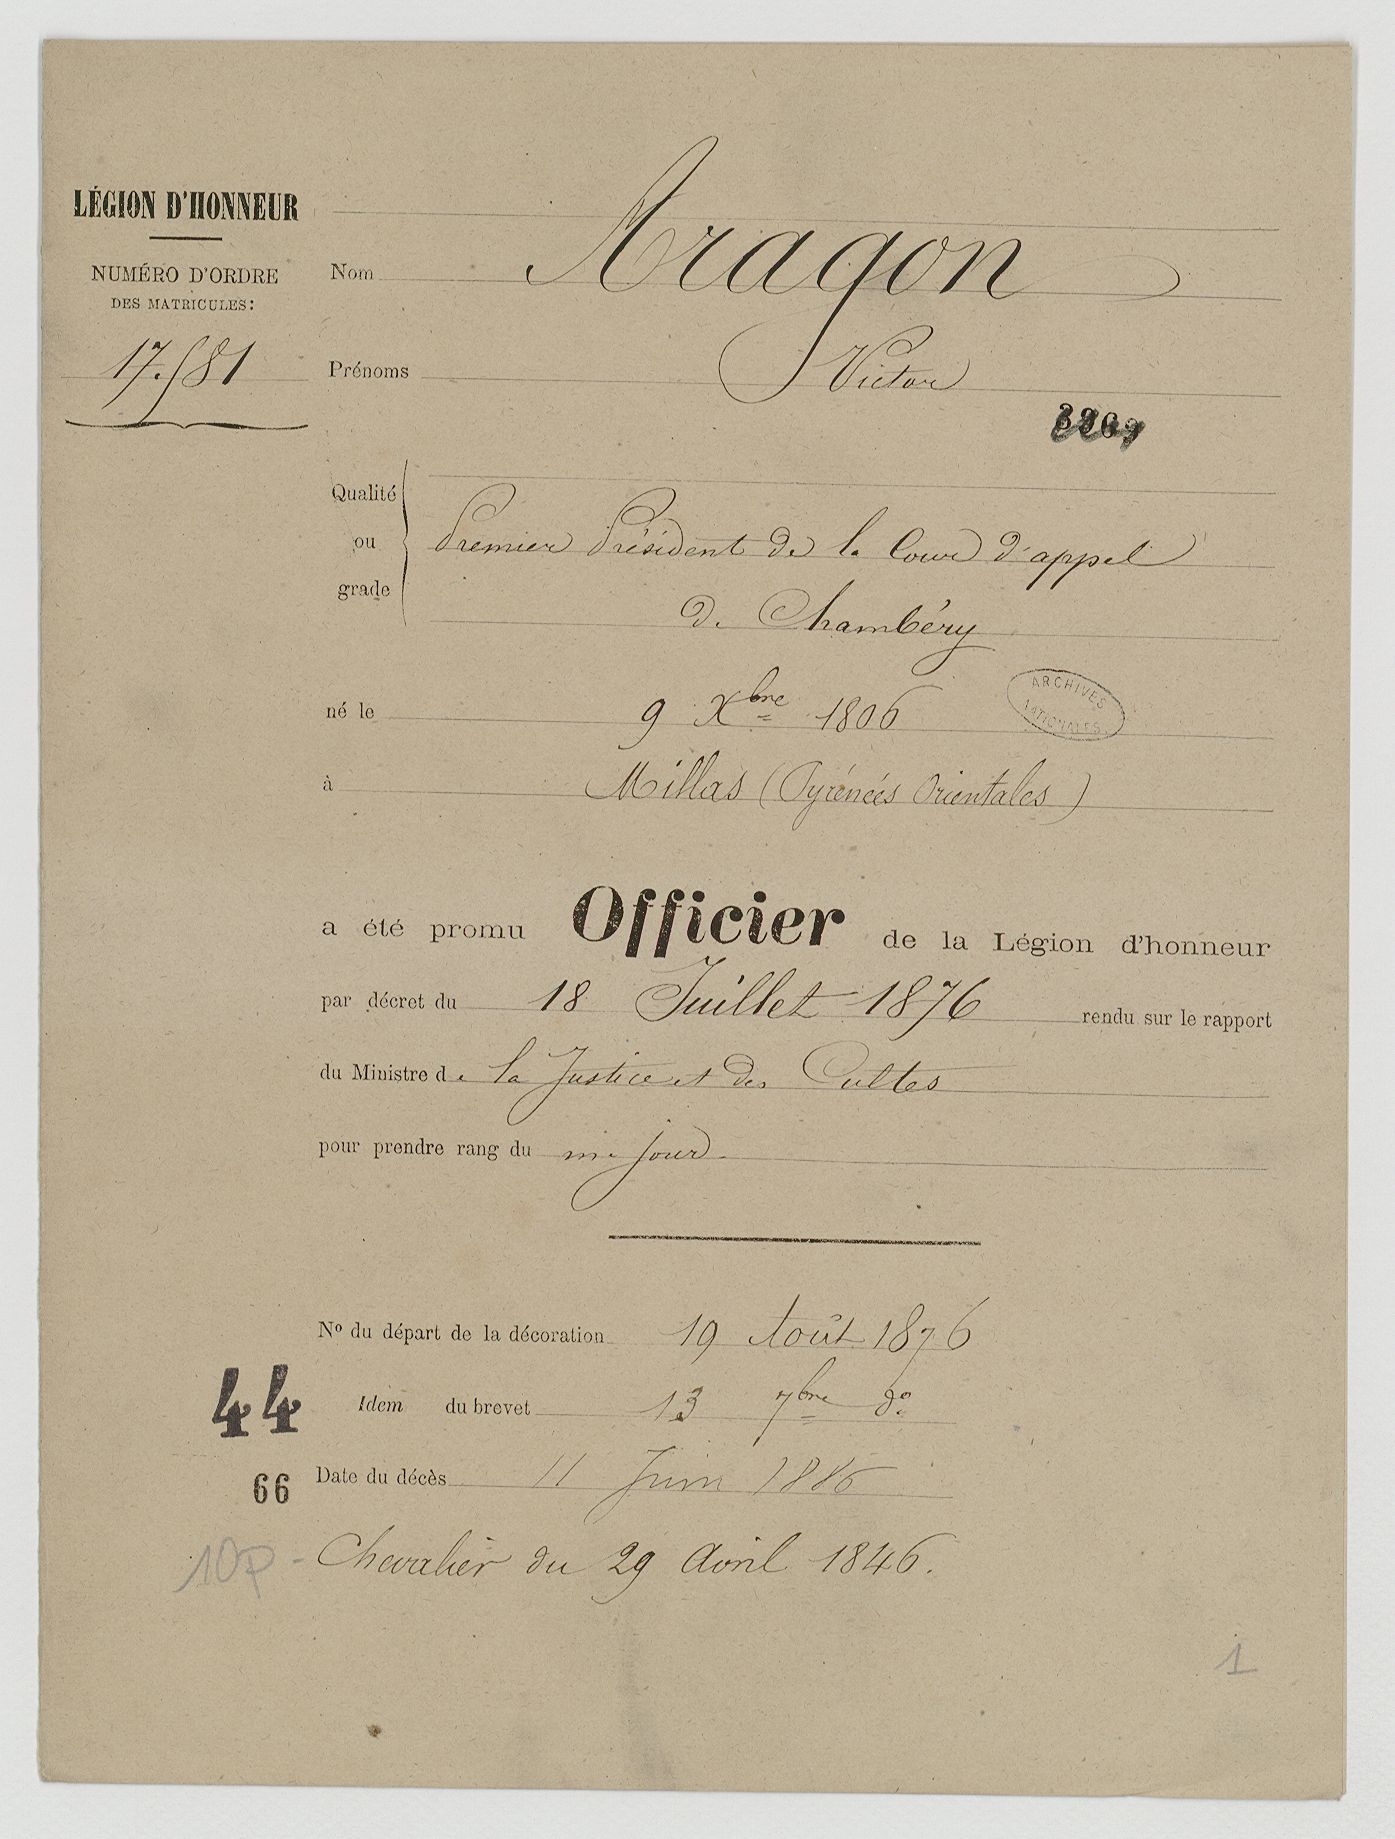 LÉGION D'HONNEUR
NUMÉRO D'ORDRE
DES MATRICULES:
17.581
Nom Aragon
Prénoms Victor
Qualité
ou
grade
Premier Président de la Cour d'appel
de Chambéry
né le 9 Xbre 1806
ARCHIVES
NATIONALES
à Millas (Pyrénées Orientales)
a été promu Officier de la Légion d'honneur
par décret du 18 Juillet 1876 rendu sur le rapport
du Ministre de la Justice et des Cultes
pour prendre rang du m. jour.
No du départ de la décoration 19 Août 1876
44
Idem du brevet 13 7bre do
66
Date du décès 11 Juin 1886
10p - Chevalier du 29 Avril 1846.
1